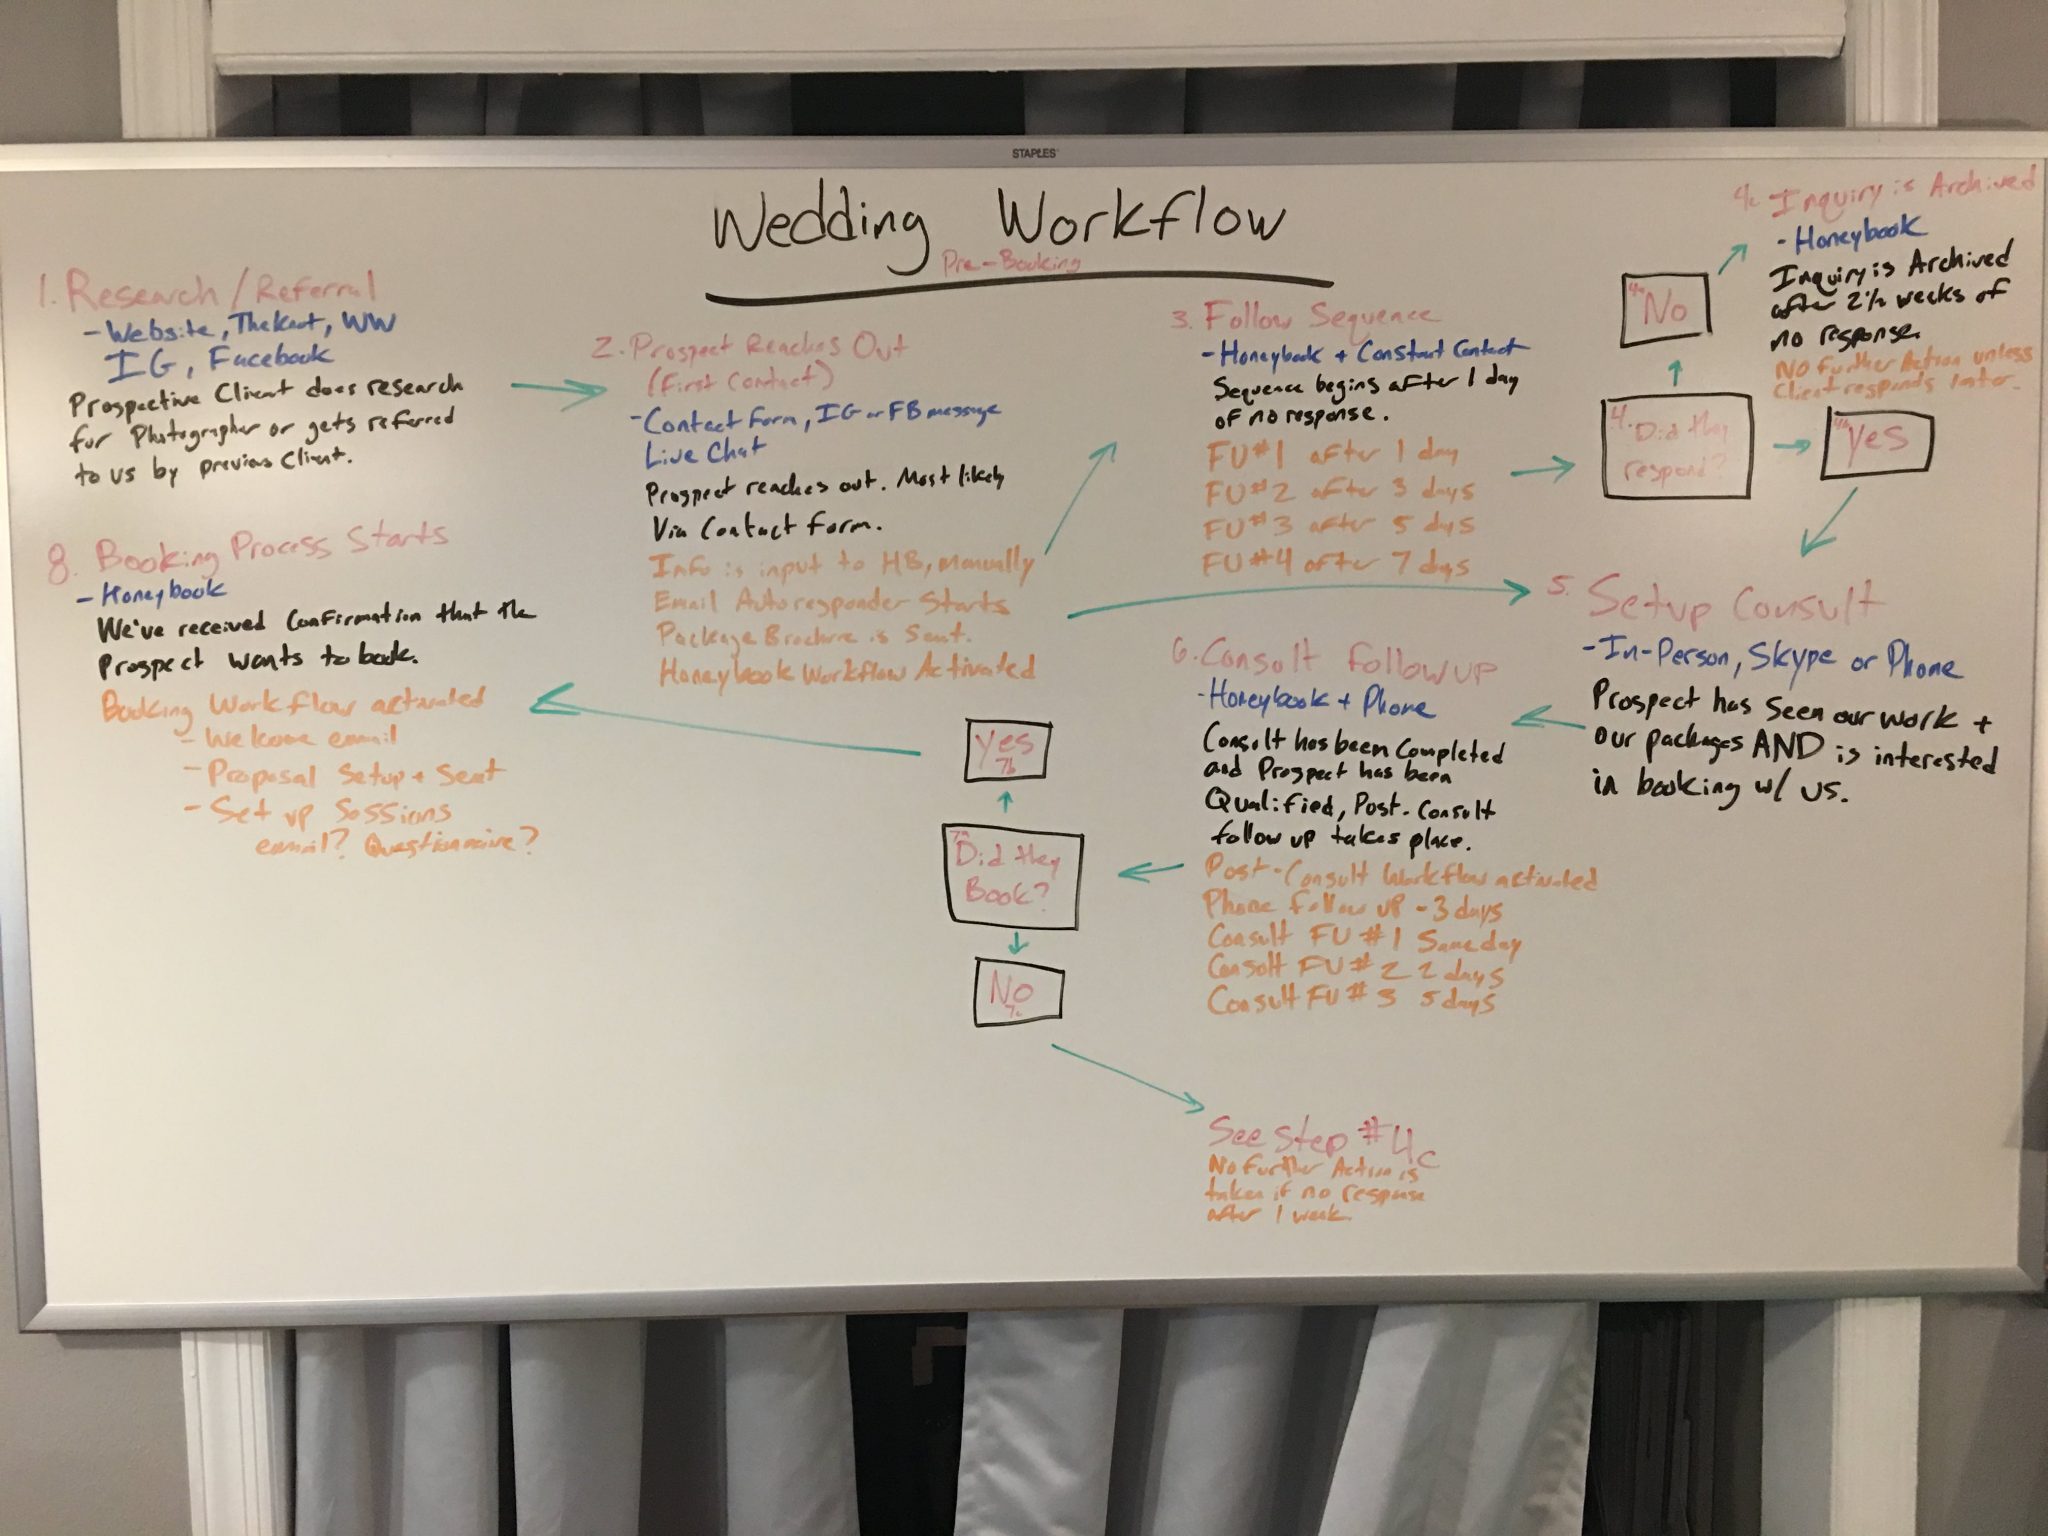 STAPLES
Wedding Workflow
Pre-Booking
1. Research/Referral
- Website, TheKnot, WW
IG, Facebook
Prospective Client does research
for Photographer or gets referred
to us by previous Client.
2. Prospect Reaches Out
(First Contact)
- Contact Form, IG or FB message
Live Chat
Prospect reaches out. Most likely
Via Contact Form.
Info is input to HB, manually
Email Autoresponder Starts
Package Brochure is Sent.
Honeybook Workflow Activated
3. Follow Sequence
- Honeybook + Constant Contact
Sequence begins after 1 day
of no response.
FU#1 after 1 day
FU#2 after 3 days
FU#3 after 5 days
FU#4 after 7 days
4. Did they
respond?
4a No
4b Yes
4c Inquiry is Archived
- Honeybook
Inquiry is Archived
after 2 1/2 weeks of
no response.
No Further Action unless
Client responds later.
5. Setup Consult
- In-Person, Skype or Phone
Prospect has seen our work +
our packages AND is interested
in booking w/ us.
6. Consult Followup
- Honeybook + Phone
Consult has been Completed
and Prospect has been
Qualified, Post-Consult
follow up takes place.
Post-Consult Workflow activated
Phone follow up - 3 days
Consult FU #1 Same day
Consult FU #2 2 days
Consult FU #3 5 days
7a
Did they
Book?
Yes
7b
No
7c
See Step #4c
No Further Action is
taken if no response
after 1 week.
8. Booking Process Starts
- Honeybook
We've received Confirmation that the
Prospect wants to book.
Booking Workflow activated
- Welcome email
- Proposal Setup + Sent
- Set up Sessions
email? Questionnaire?